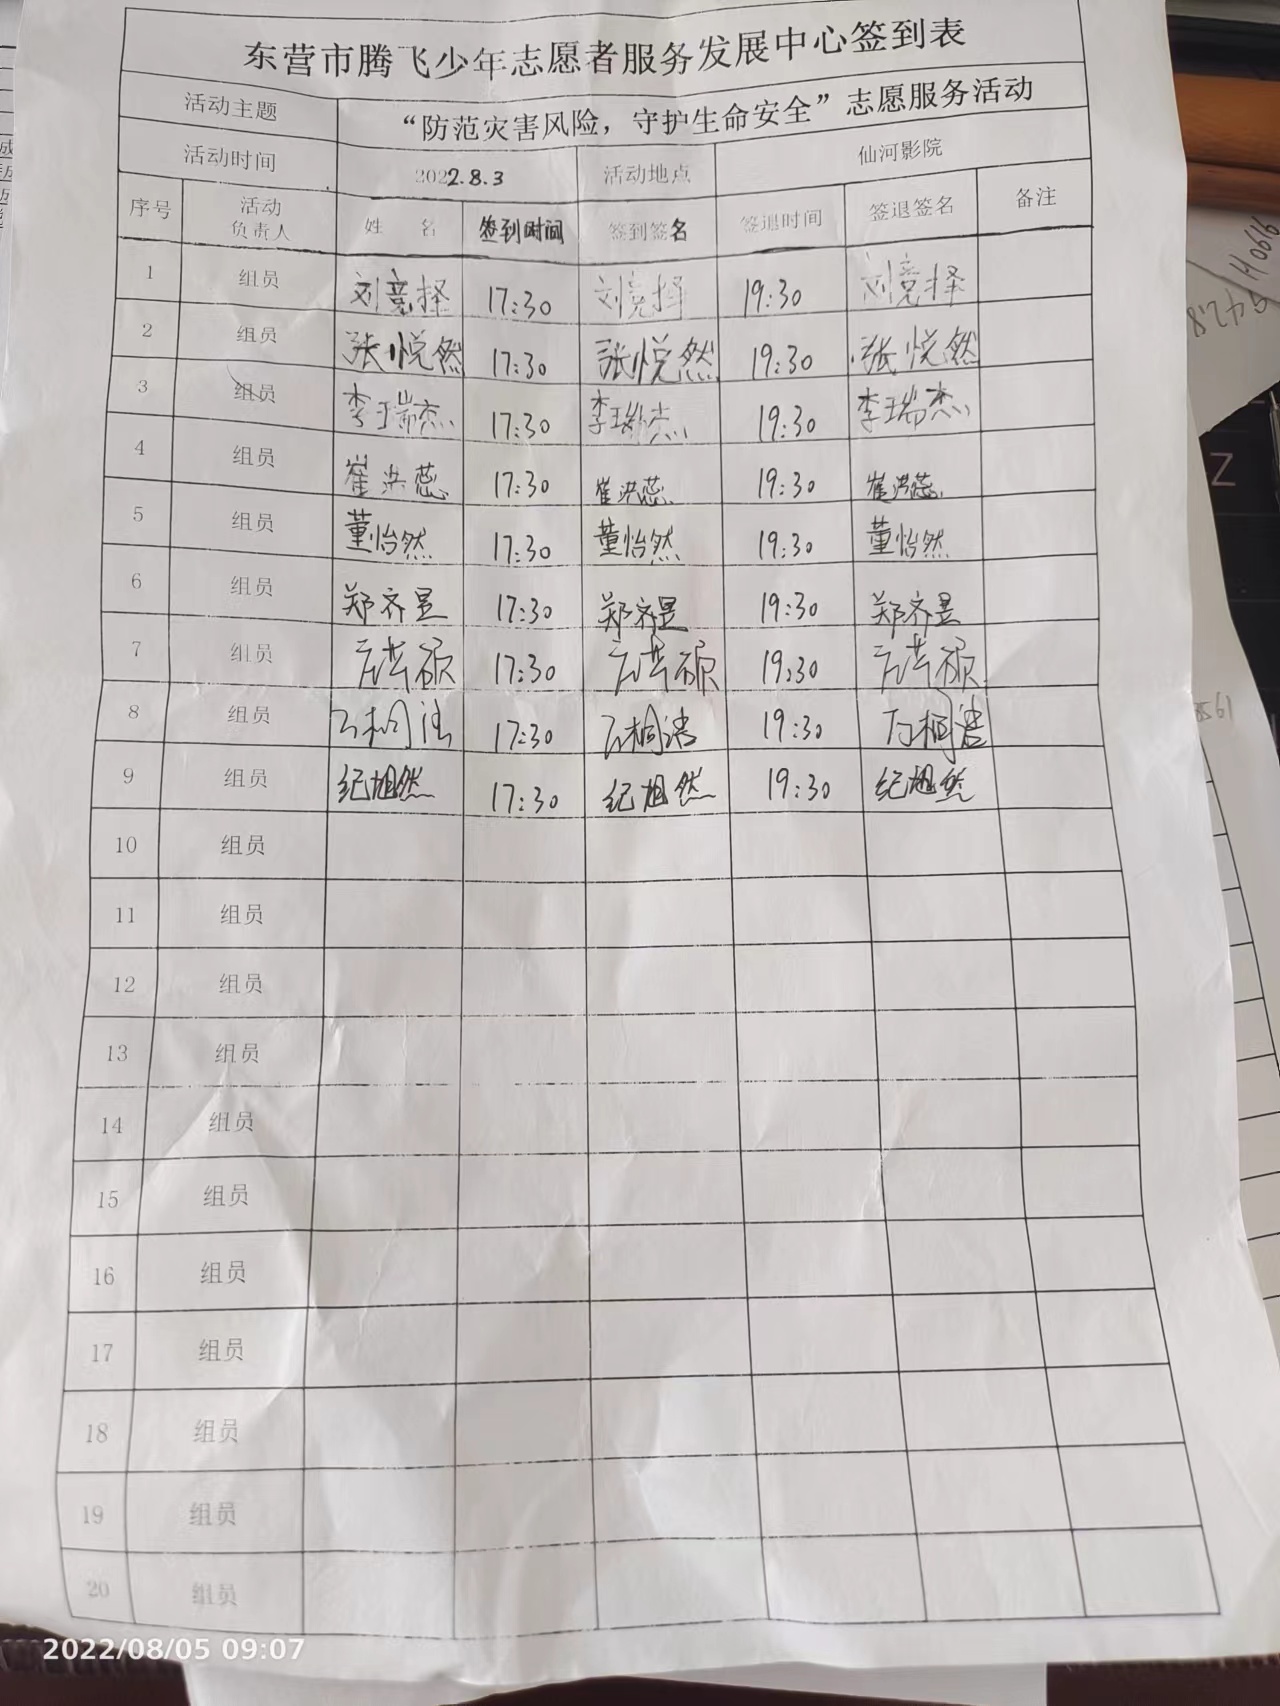 东营市腾飞少年志愿者服务发展中心签到表
活动主题 “防范灾害风险，守护生命安全”志愿服务活动
活动时间 2022.8.3 活动地点 仙河影院
序号 活动负责人 姓 名 签到时间 签到签名 签退时间 签退签名 备注
1 组员 刘竞择 17:30 刘竞择 19:30 刘竞择
2 组员 张悦然 17:30 张悦然 19:30 张悦然
3 组员 李瑞杰 17:30 李瑞杰 19:30 李瑞杰
4 组员 崔洪蕊 17:30 崔洪蕊 19:30 崔洪蕊
5 组员 董怡然 17:30 董怡然 19:30 董怡然
6 组员 郑齐昱 17:30 郑齐昱 19:30 郑齐昱
7 组员 17:30 19:30
8 组员 17:30 19:30
9 组员 纪旭然 17:30 纪旭然 19:30 纪旭然
10 组员
11 组员
12 组员
13 组员
14 组员
15 组员
16 组员
17 组员
18 组员
19 组员
20 组员
Z
2022/08/05 09:07